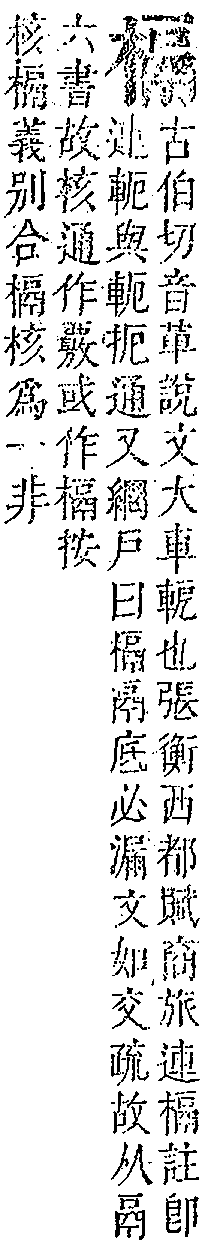 槅
古伯切音革說文大車軶也張衡西都賦商旅連槅註卽
軛與軶扼通又網戶曰槅鬲底必漏文如交疏故从鬲
六書故核通作覈或作槅按
核槅義別合槅核爲一非